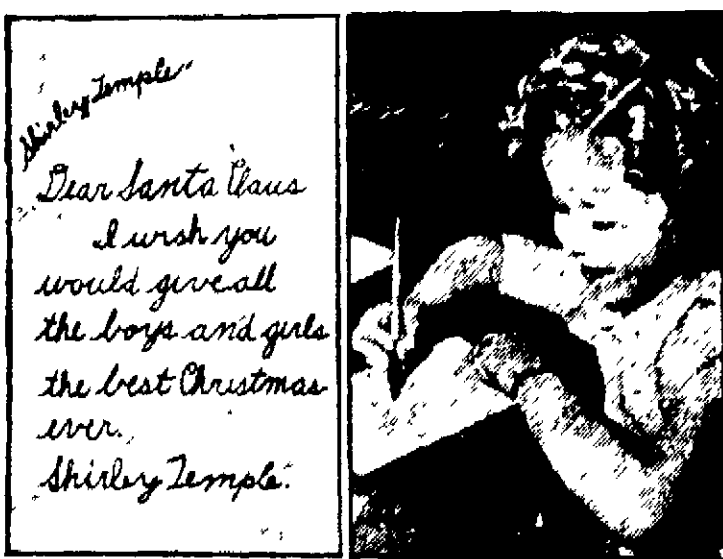 Shirley Temple
Dear Santa Claus
I wish you
would give all
the boys and girls
the best Christmas
ever.
Shirley Temple.